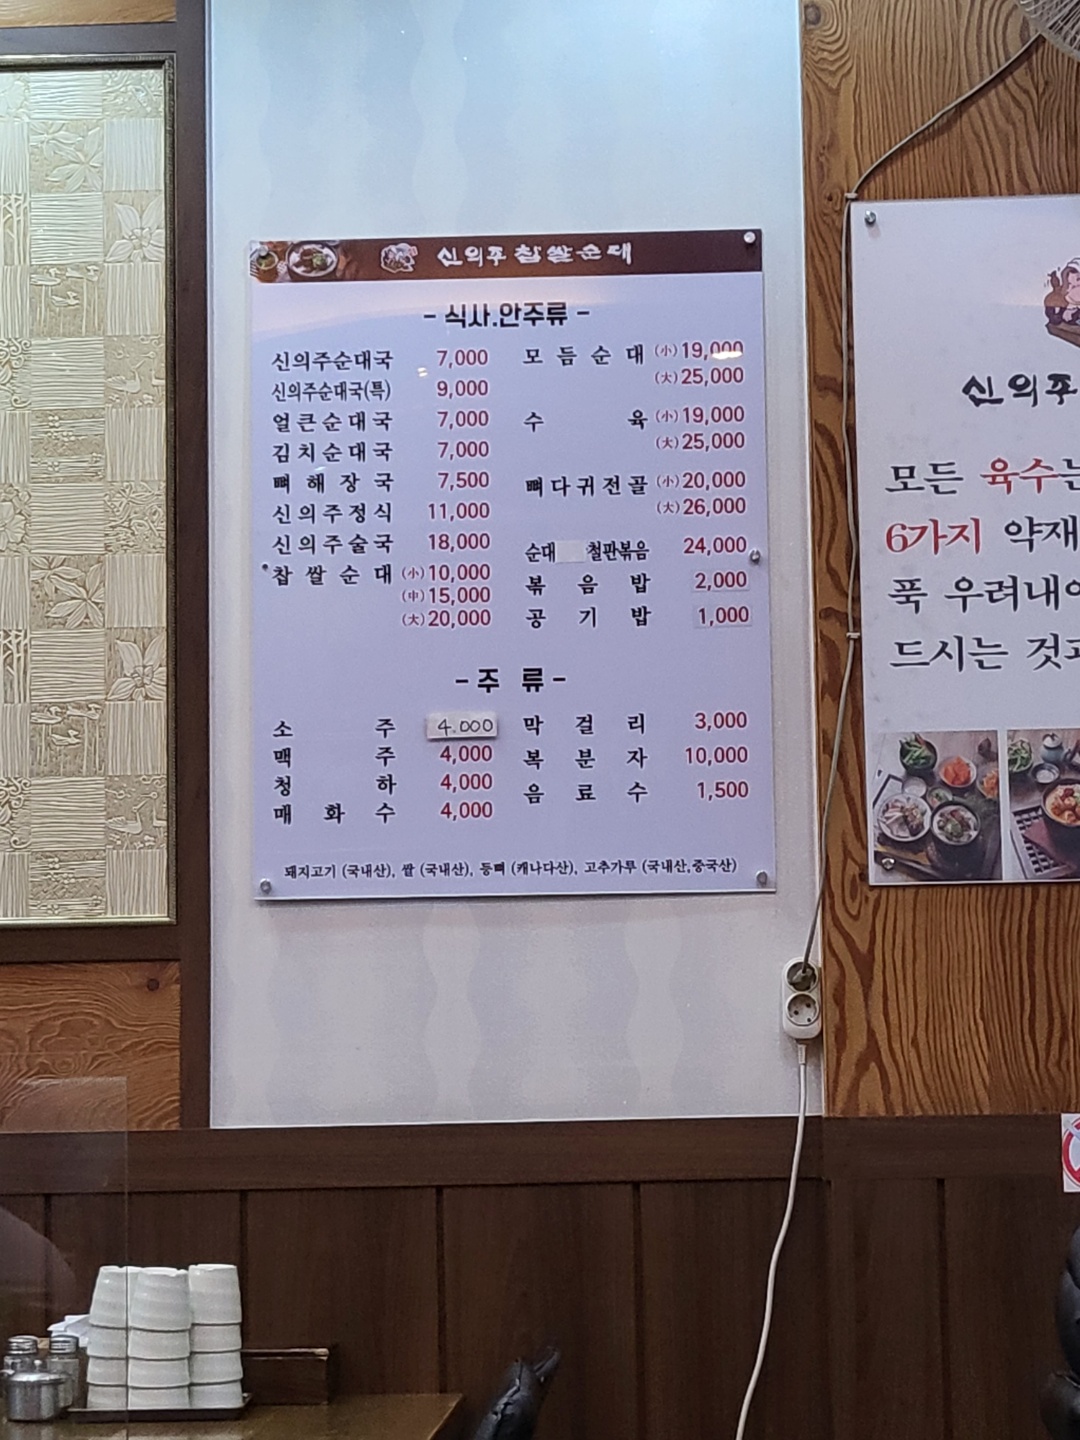 신의주 찹쌀순대
- 식사.안주류 -
신의주순대국 7,000
신의주순대국(특) 9,000
얼큰순대국 7,000
김치순대국 7,000
뼈해장국 7,500
신의주정식 11,000
신의주술국 18,000
찹쌀순대 (小) 10,000
(中) 15,000
(大) 20,000
모듬순대 (小) 19,000
(大) 25,000
수육 (小) 19,000
(大) 25,000
뼈다귀전골 (小) 20,000
(大) 26,000
순대 철판볶음 24,000
볶음밥 2,000
공기밥 1,000
- 주 류 -
소주 4.000
맥주 4,000
청하 4,000
매화수 4,000
막걸리 3,000
복분자 10,000
음료수 1,500
돼지고기 (국내산), 쌀 (국내산), 등뼈 (캐나다산), 고추가루 (국내산,중국산)
신의주
모든 육수는
6가지 약재
푹 우려내어
드시는 것과